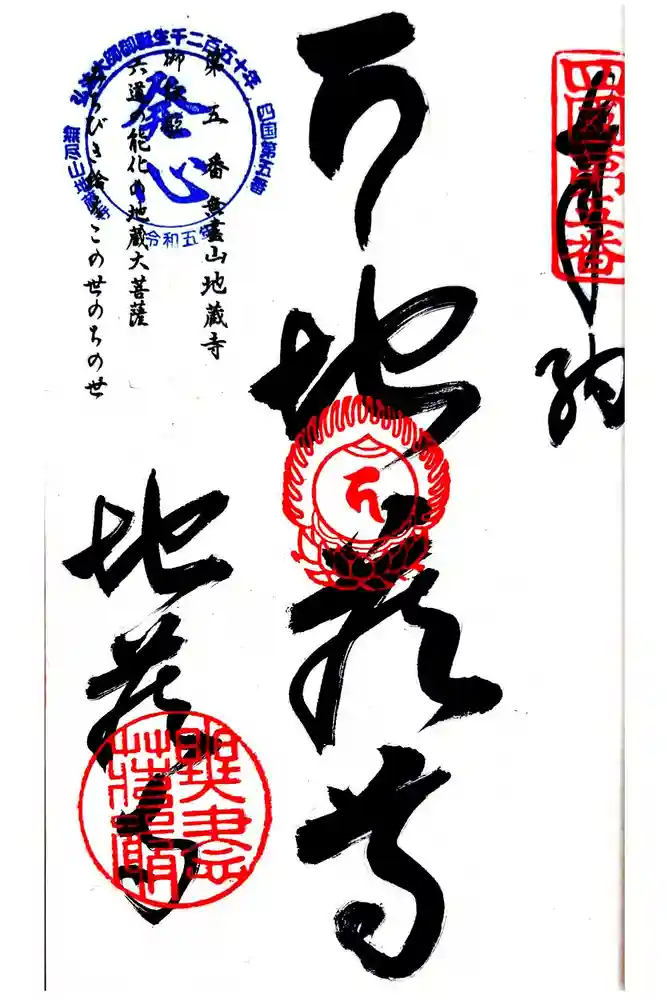 奉納
四国第五番
地蔵尊
第五番 無盡山地蔵寺
御詠歌
六道の能化の地蔵大菩薩
みちびき給へこの世のちの世
弘法大師御誕生千二百五十年
四国第五番
無尽山地蔵寺
発心
令和五年
地蔵寺